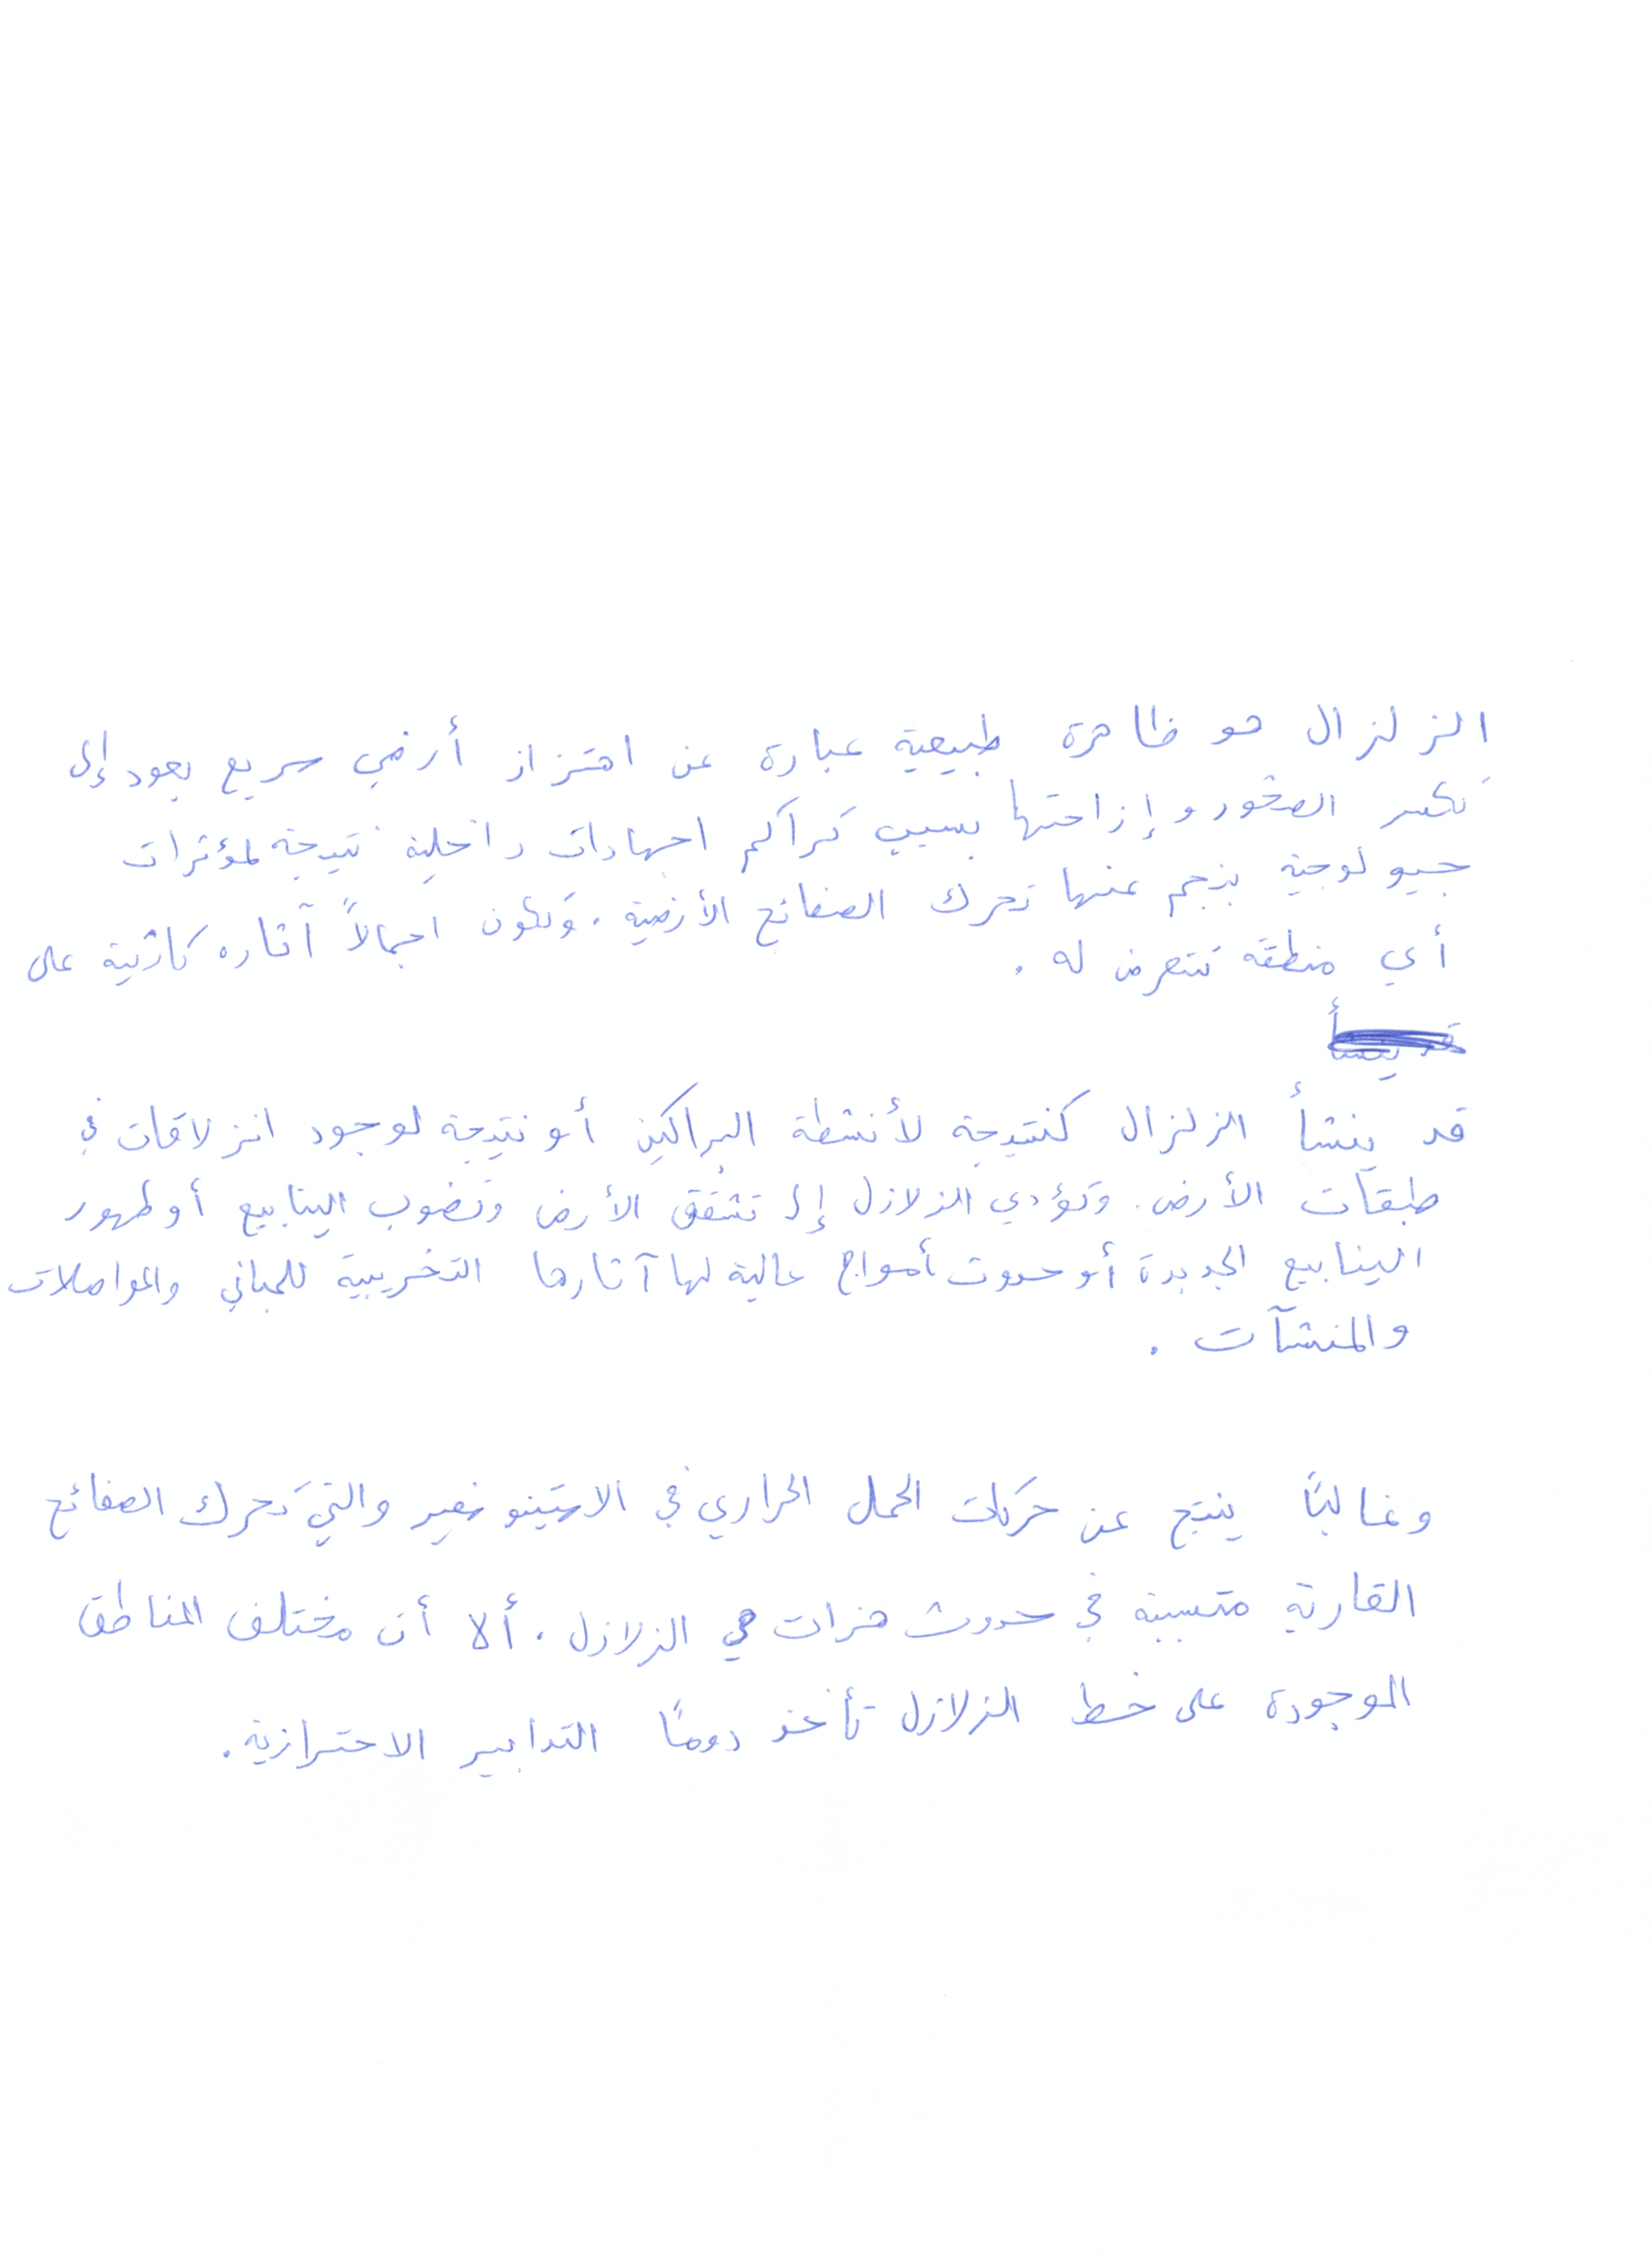 الزلزال هو ظاهرة طبيعية عبارة عن اهتزاز أرضي سريع يعود إلى
تكسر الصخور وإزاحتها بسبب تراكم اجهادات داخلية نتيجة لمؤثرات
جيولوجية ينجم عنها تحرك الصفائح الأرضية. وتكون اجمالاً آثاره كارثية على
أي منطقة تتعرض له.
قد ينشأ الزلزال كنتيجة لأنشطة البراكين أو نتيجة لوجود انزلاقات في
طبقات الأرض. وتؤدي الزلازل إلى تشقق الأرض ونضوب الينابيع أو ظهور
الينابيع الجديدة أو حدوث أمواج عالية لها آثارها التخريبية للمباني والمواصلات
والمنشآت.
وغالبًا ينتج عن حركات الحمل الحراري في الاستينوسفير والتي تحرك الصفائح
القارية متسببة في حدوث هزات هي الزلازل. ألا أن مختلف المناطق
الموجودة على خط الزلازل تأخذ دومًا التدابير الاحترازية.